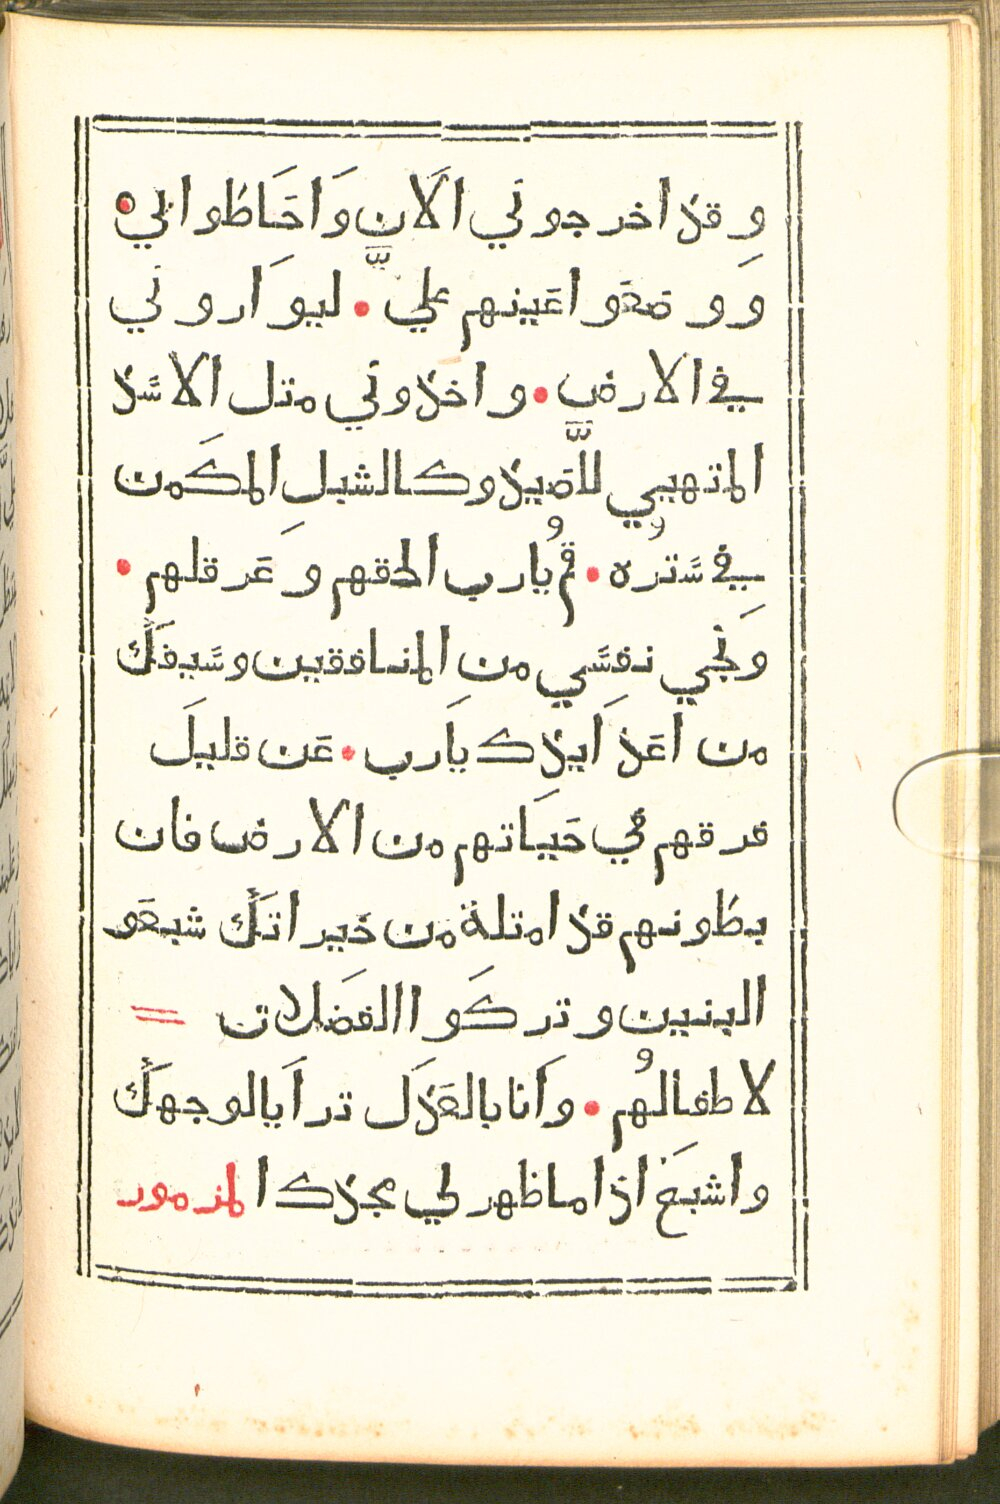 وقد اخرجوني الَان وَاحَاطوا بي
وَوضعَوا اعَينهم عليَّ • ليوَاروني
في الارض • واخذوني متل الاسَد
المتهيي للصَّيد وكالشبلِ المكَمن
في ستره • قُم يارب الحقهم وعَرقلهم •
وَنجي نفسَي من المنافقين وسَيفكَ
من اعَدَايِدك يَارب • عَن قليلَ
فرقهم في حيَاتهم من الارض فان
بطونهم قد امتلة من خَيراتكَ شبعَو
البنين وتركَوا الفضَلات
لاطفالهُم • وَانا بالعَدَل ترَايا لوجهكَ
واشبعَ اذا ما ظهر لي مجدك المزمور